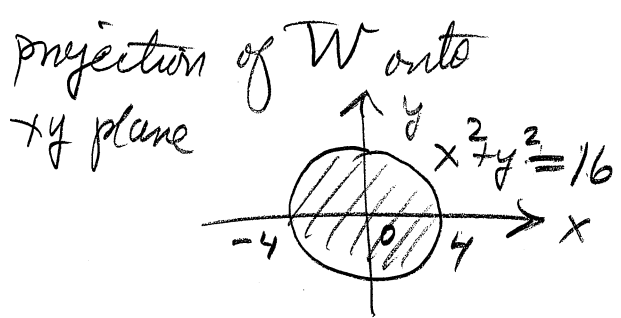 projection of W onto
xy plane
y
x²+y²=16
-4 0 4 x